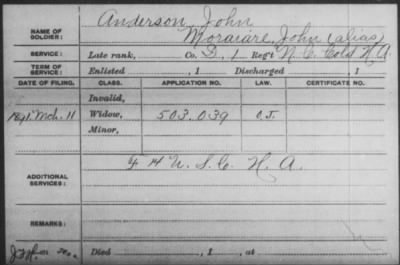 Anderson, John
NAME OF SOLDIER: Moraiare, John (alias)
SERVICE: Late rank, Co. D, 1 Reg't N.C. Cold H.A.
TERM OF SERVICE: Enlisted , 1 Discharged , 1
DATE OF FILING. CLASS. APPLICATION NO. LAW. CERTIFICATE NO.
Invalid,
1891 Mch. 11 Widow, 503.039 O.J.
Minor,
ADDITIONAL SERVICES: F 14 U.S.C. H.A.
REMARKS:
Died , 1 , at